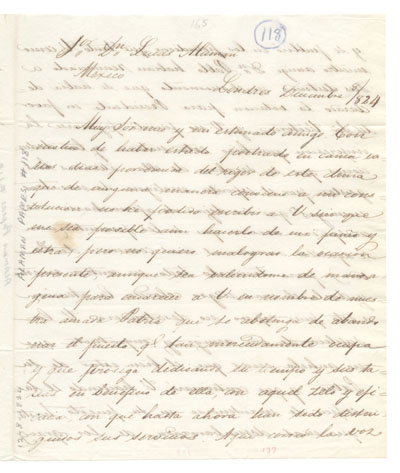 165
118
Sr. Dn. Lucas Alaman
Mexico
Londres Diciembre /824
Muy Sor. mio y mi estimado amigo Con
motivo de haber estado postrado en cama es
tos dias por el rigor de este clima
que de ninguna manera conviene a mi cons
titucion no he podido escribir a V. sin que
me sea posible aun hacerlo de mi puño y
letra pero no quiero malograr la ocasion
presente aunque sea valiendome de mano
agena para encarecer a V. en nombre de nues
tra amada Patria que se abstenga de abando
nar el puesto qe. tan merecidamente ocupa
y que prosiga dedicando su tiempo y sus ta
reas en beneficio de ella, con aquel zelo y efi
cacia con que hasta ahora han sido distin
guidos sus servicios. Aqui corre la voz
ALAMAN PAPERS # 118
137